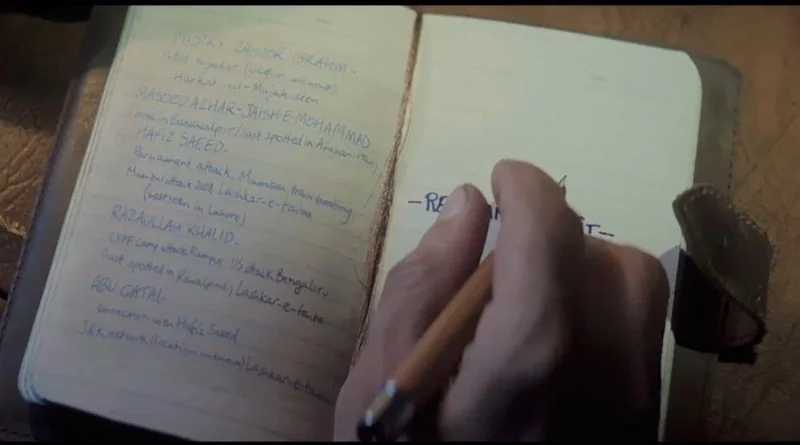 MISTRY ZAHOOR IBRAHIM -
hijacker (location unknown)
Harkat ul-Mujahideen
MASOOD AZHAR - JAISH-E-MOHAMMAD
in Bahawalpur / last spotted in Afghanistan
HAFIZ SAEED -
Parliament attack, Mumbai train bombing
Mumbai attack 2008 Lashkar-e-taiba
(last seen in Lahore)
RAZAULLAH KHALID -
CRPF camp attack Rampur, IIS attack Bengaluru
(last spotted in ) Lashkar-e-taiba
ABU QATAL -
connection with Hafiz Saeed
J&K network (location unknown) Lashkar-e-taiba